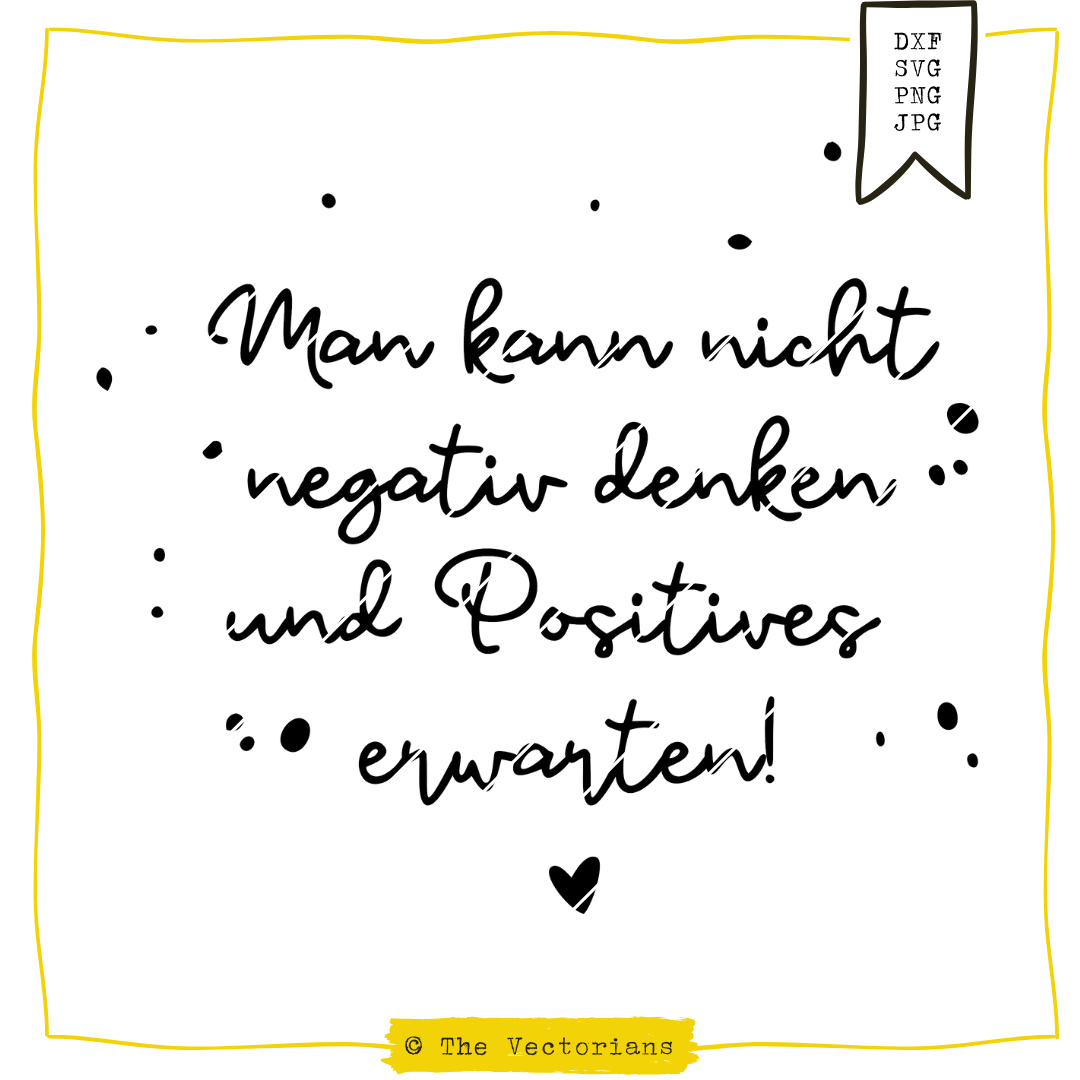 DXF
SVG
PNG
JPG
Man kann nicht
negativ denken
und Positives
erwarten!
© The Vectorians